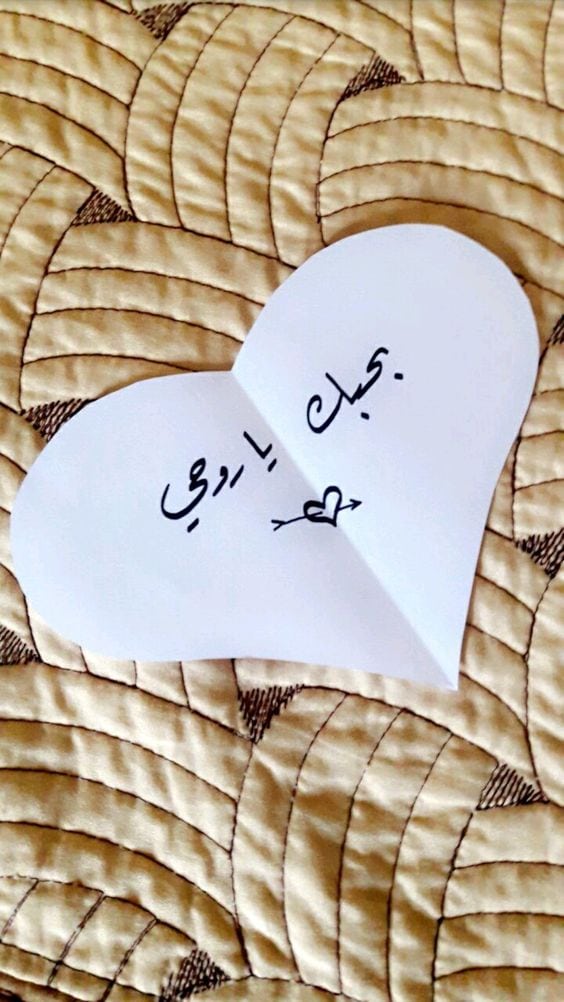 بحبك يا روحي